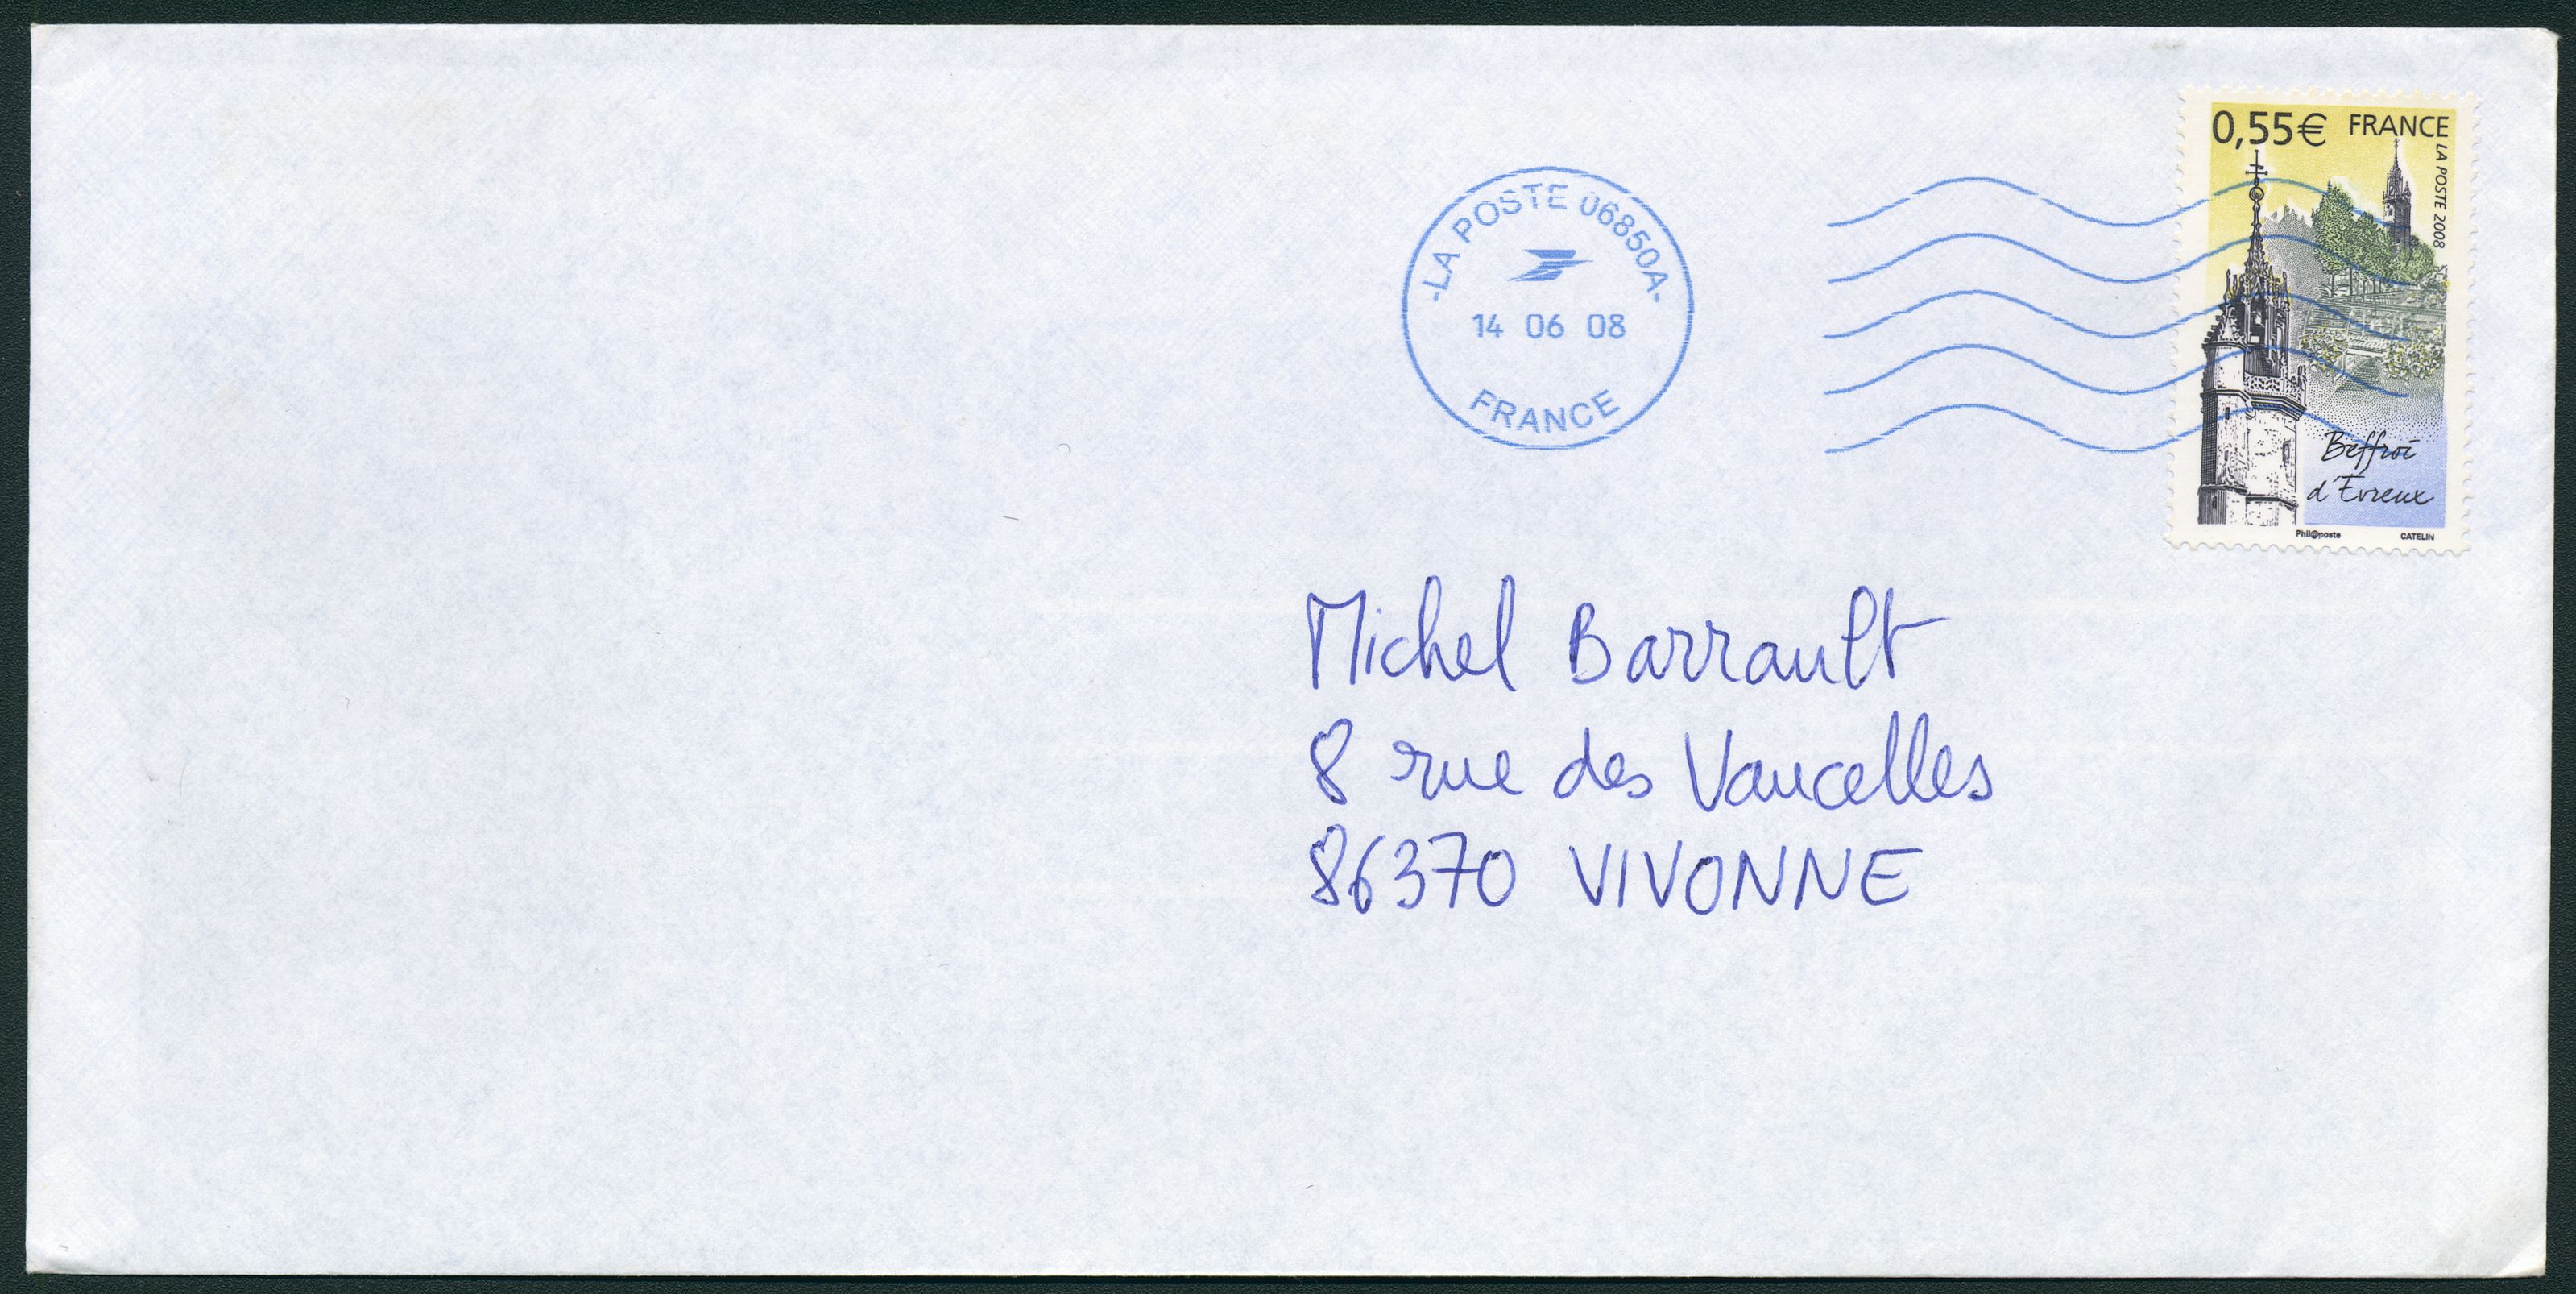 0,55€ FRANCE
LA POSTE 2008
-LA POSTE 06850A-
14 06 08
FRANCE
Beffroi
d'Évreux
Phil@poste CATELIN
Michel Barrault
8 rue des Vaucelles
86370 VIVONNE